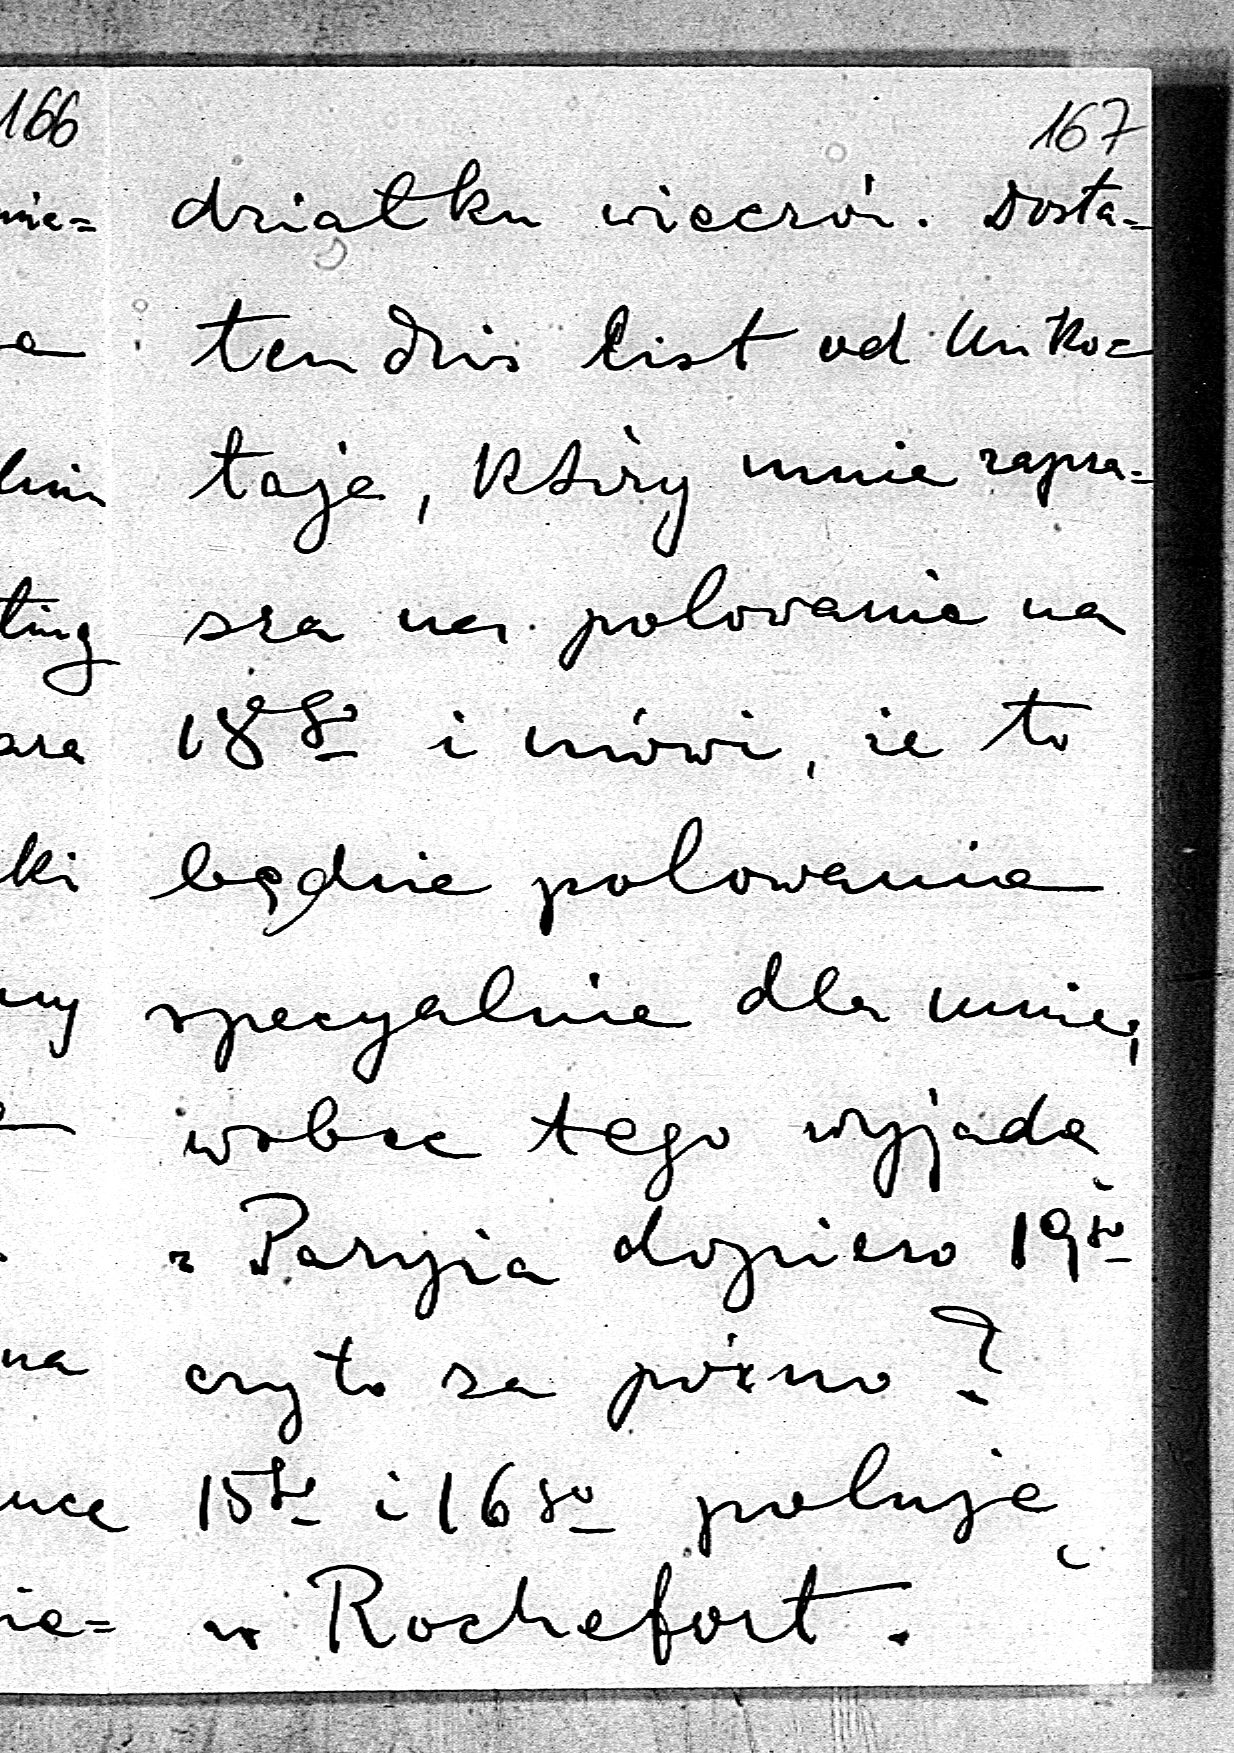 166
nie=
a
ting
ki
ny
na
nie=
167
działku wieczór. Dosta=
łem dziś list od Miko=
łaja, który mnie zapra=
sza na polowanie na
18go i mówi, że to
będzie polowanie
specyalnie dla mnie,
wobec tego wyjadę
z Paryża dopiero 19go
czy to za późno?
15go i 16go poluję
w Rochefort.